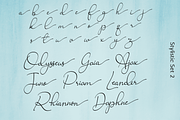 a b c d e f g h i j
k l m n o p q r s t
u v w x y z
Odysseus Gaia Ajax
Juno Priam Leander
Rhiannon Daphne
Stylistic Set 2